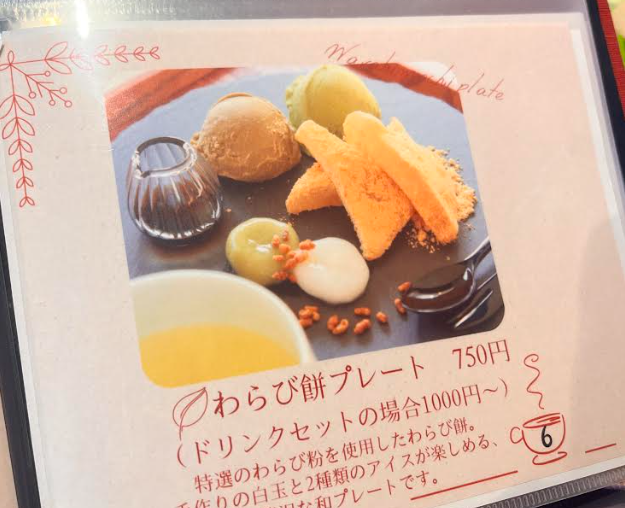 plate
わらび餅プレート 750円
(ドリンクセットの場合1000円〜)
特選のわらび粉を使用したわらび餅。
作りの白玉と2種類のアイスが楽しめる、
な和プレートです。
6